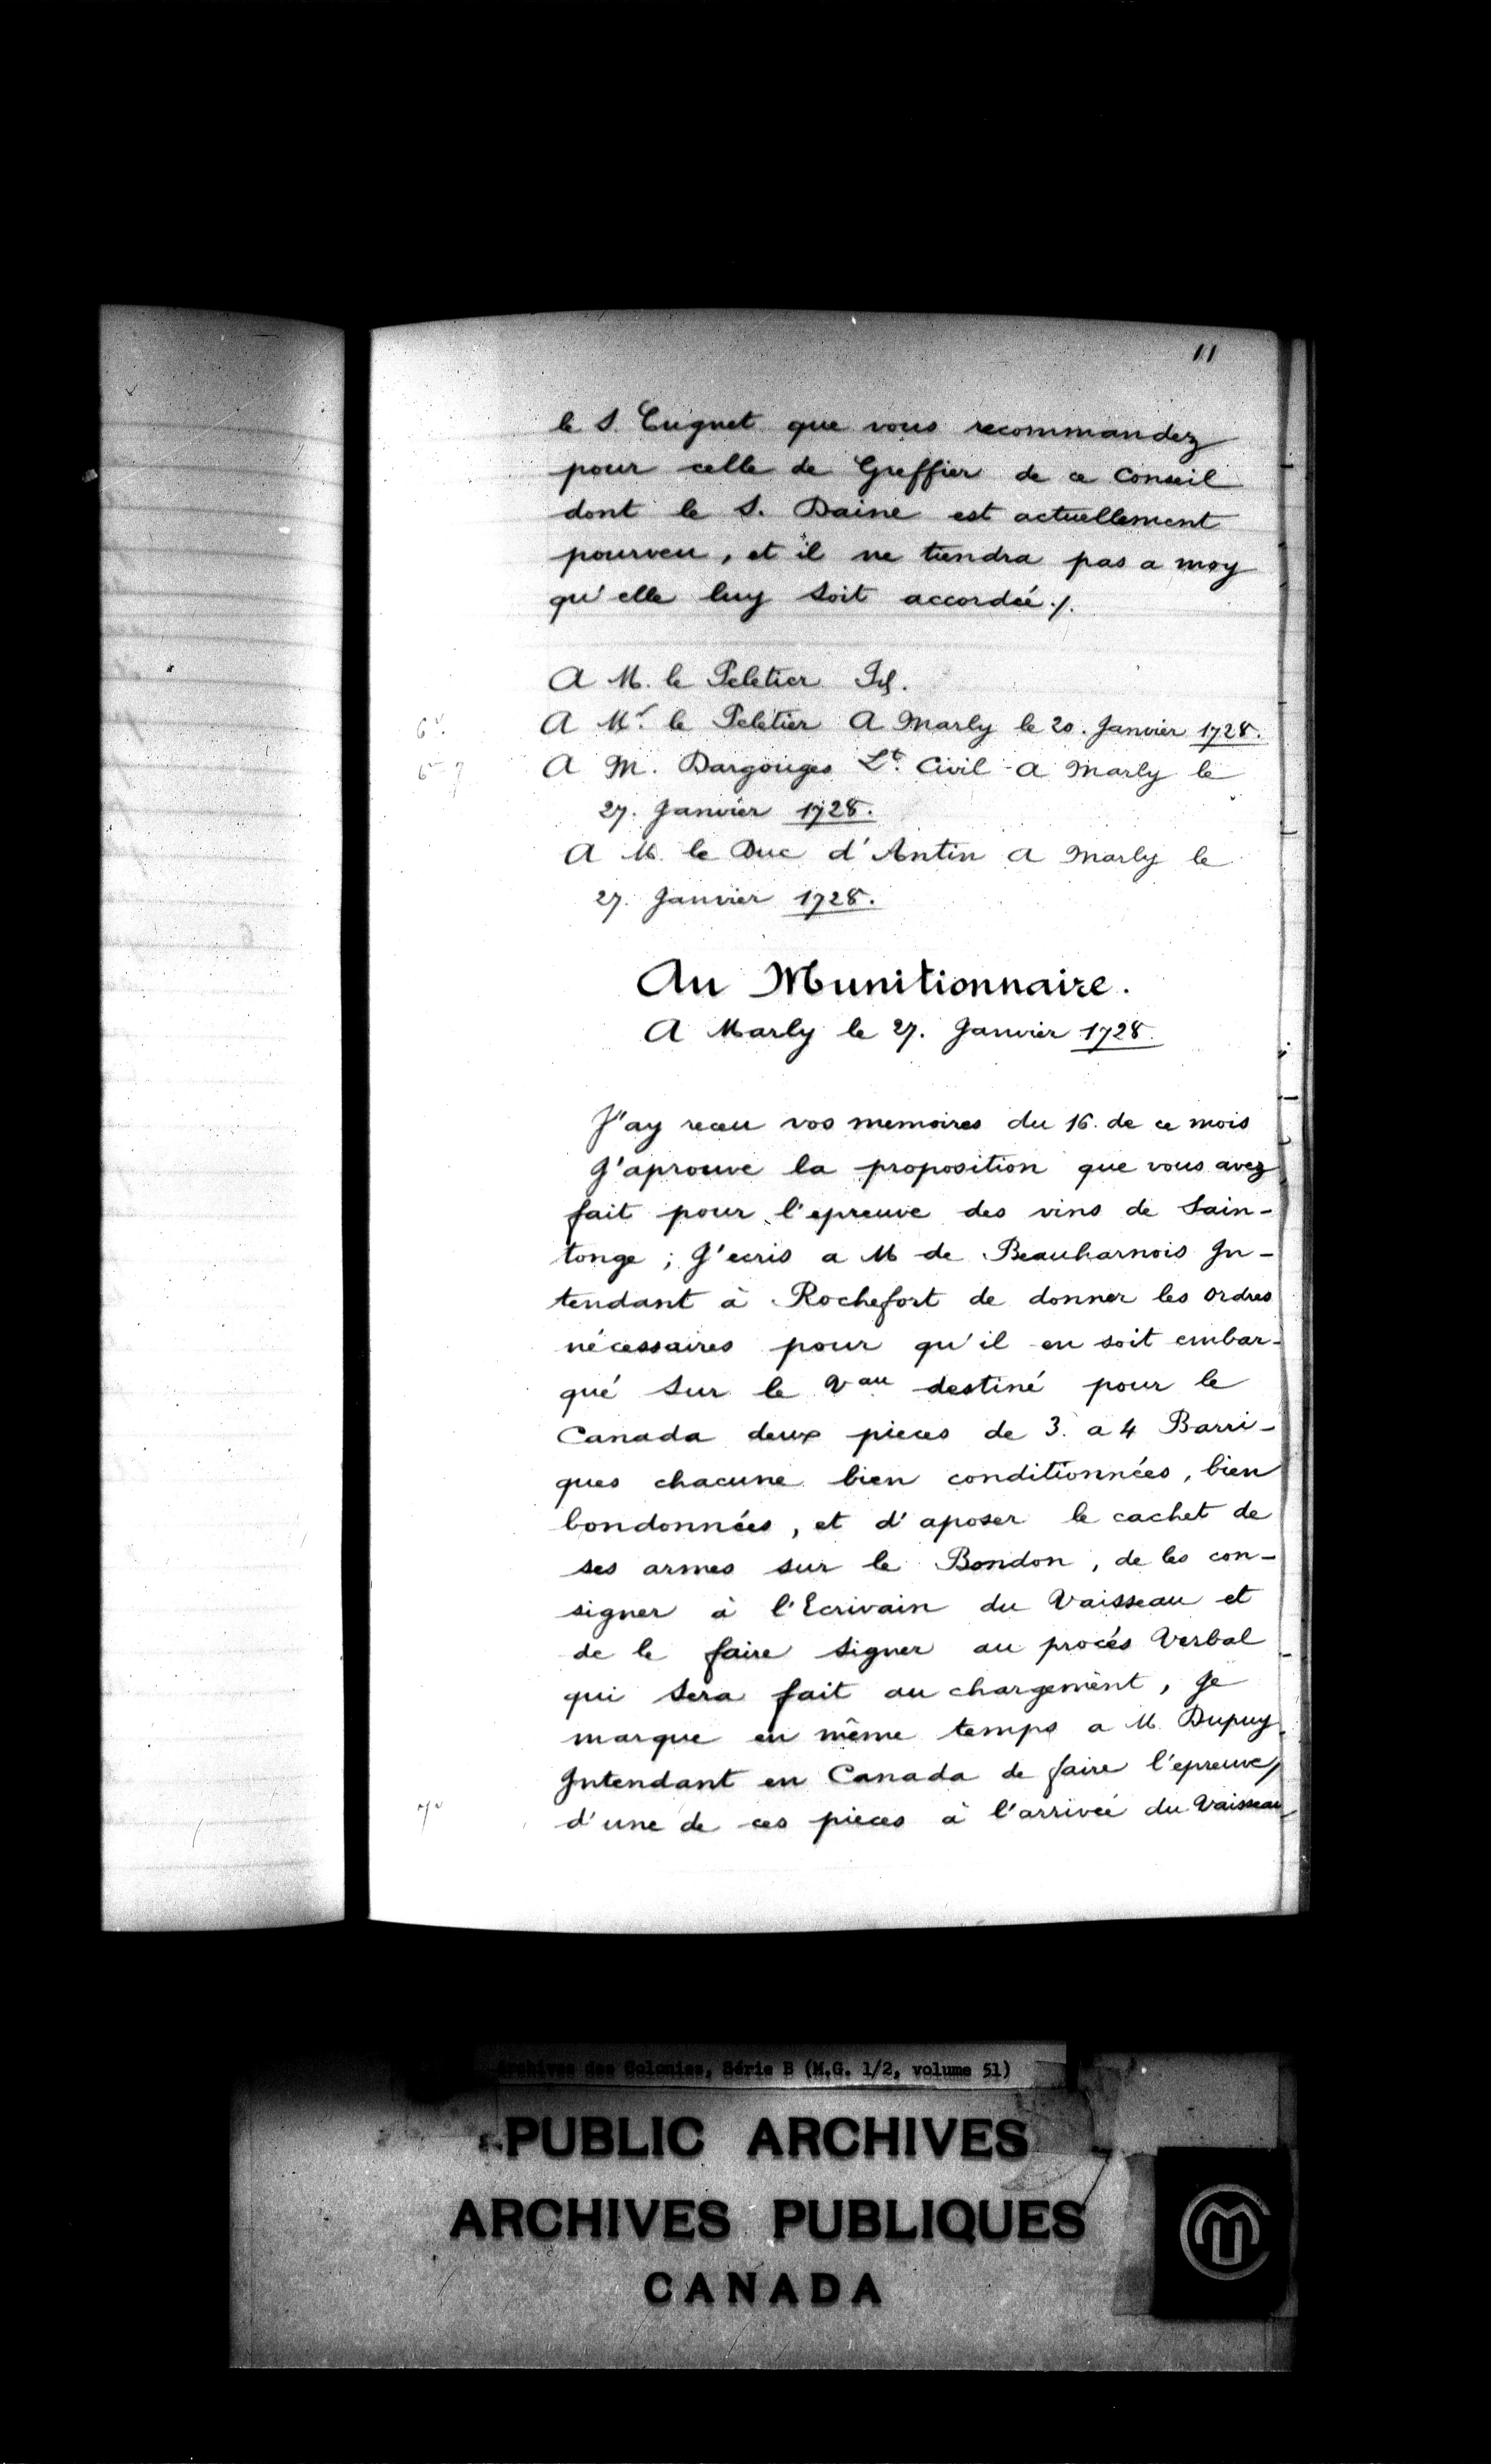 11
le S. Cugnet que vous recommandez
pour celle de Greffier de ce Conseil
dont le S. Daine est actuellement
pourveu, et il ne tiendra pas a moy
qu'elle luy soit accordée ./.
A M. le Peletier
6v.
A Mr. le Peletier A Marly le 20. Janvier 1728.
A M. Dargouges Lt. Civil A Marly le
27. Janvier 1728.
A M. le Duc d'Antin A Marly le
27. Janvier 1728.
Au Munitionnaire.
A Marly le 27. Janvier 1728.
J'ay receu vos memoires du 16. de ce mois
J'aprouve la proposition que vous avez
fait pour l'epreuve des vins de Sain-
tonge ; J'ecris a M de Beauharnois In-
tendant à Rochefort de donner les ordres
nécessaires pour qu'il en soit embar-
qué sur le Vau destiné pour le
Canada deux pieces de 3. a 4 Barri-
ques chacune bien conditionnées, bien
bondonnées, et d'aposer le cachet de
ses armes sur le Bondon, de les con-
signer à l'Ecrivain du Vaisseau et
de le faire signer au procés Verbal
qui sera fait au chargement, Je
marque en même temps a M. Dupuy
Intendant en Canada de faire l'epreuve
7v
d'une de ces pieces à l'arrivée du Vaisseau
Archives des Colonies, Série B (M.G. 1/2, volume 51)
PUBLIC ARCHIVES
ARCHIVES PUBLIQUES
CANADA